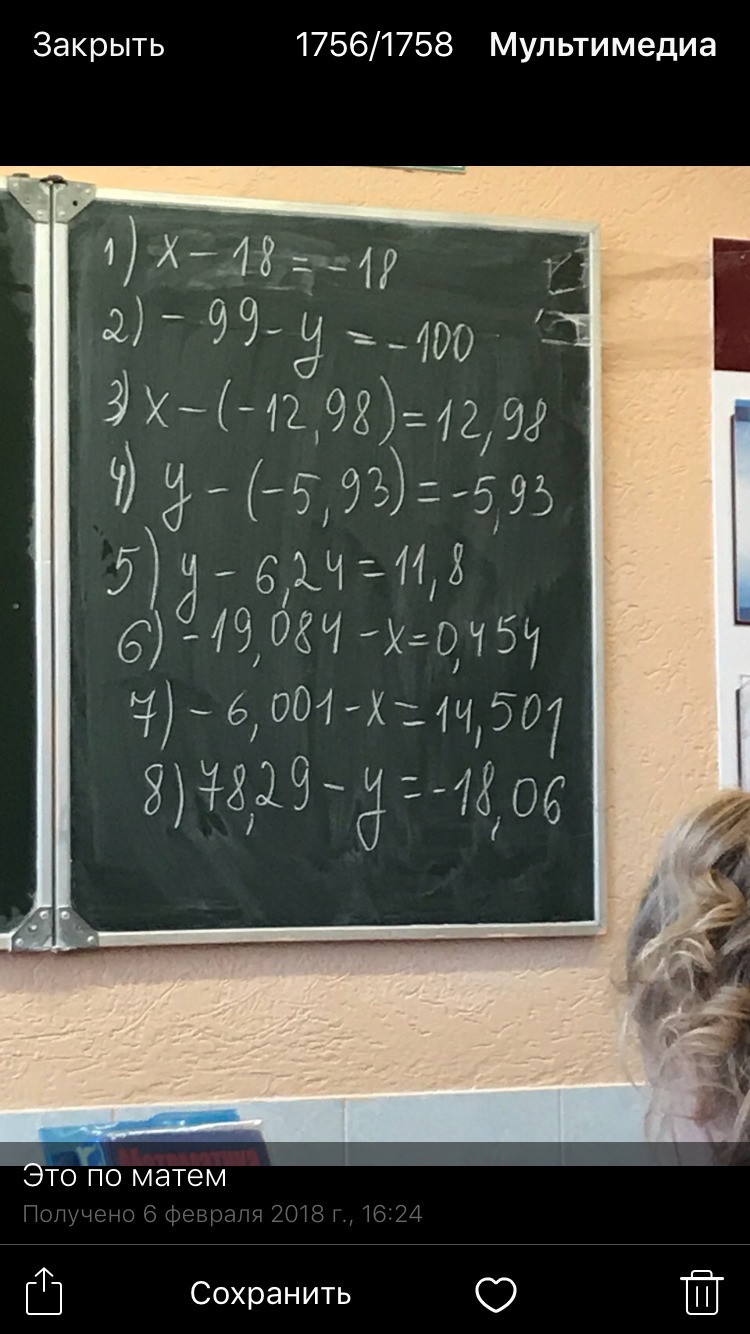 Закрыть 1756/1758 Мультимедиа
1) x - 18 = -18
2) - 99 - y = -100
3) x - (-12,98) = 12,98
4) y - (-5,93) = -5,93
5) y - 6,24 = 11,8
6) -19,084 - x = 0,454
7) - 6,001 - x = 14,501
8) 78,29 - y = -18,06
Математика
Это по матем
Получено 6 февраля 2018 г., 16:24
Сохранить